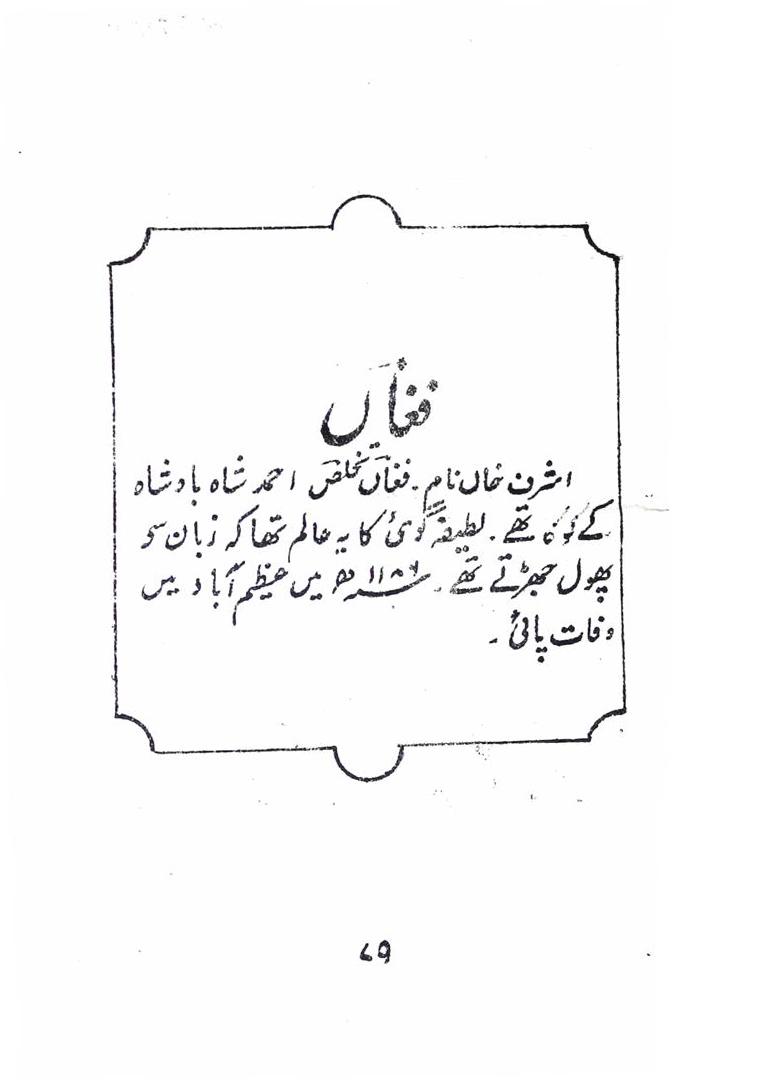 فغاں
اشرف خاں نام۔ فغاں تخلص احمد شاہ بادشاہ
کے کوکہ تھے۔ لطیفہ گوئی کا یہ عالم تھا کہ زبان سے
پھول جھڑتے تھے۔ ۱۱۸۶ھ میں عظیم آباد میں
وفات پائی۔
۷۹